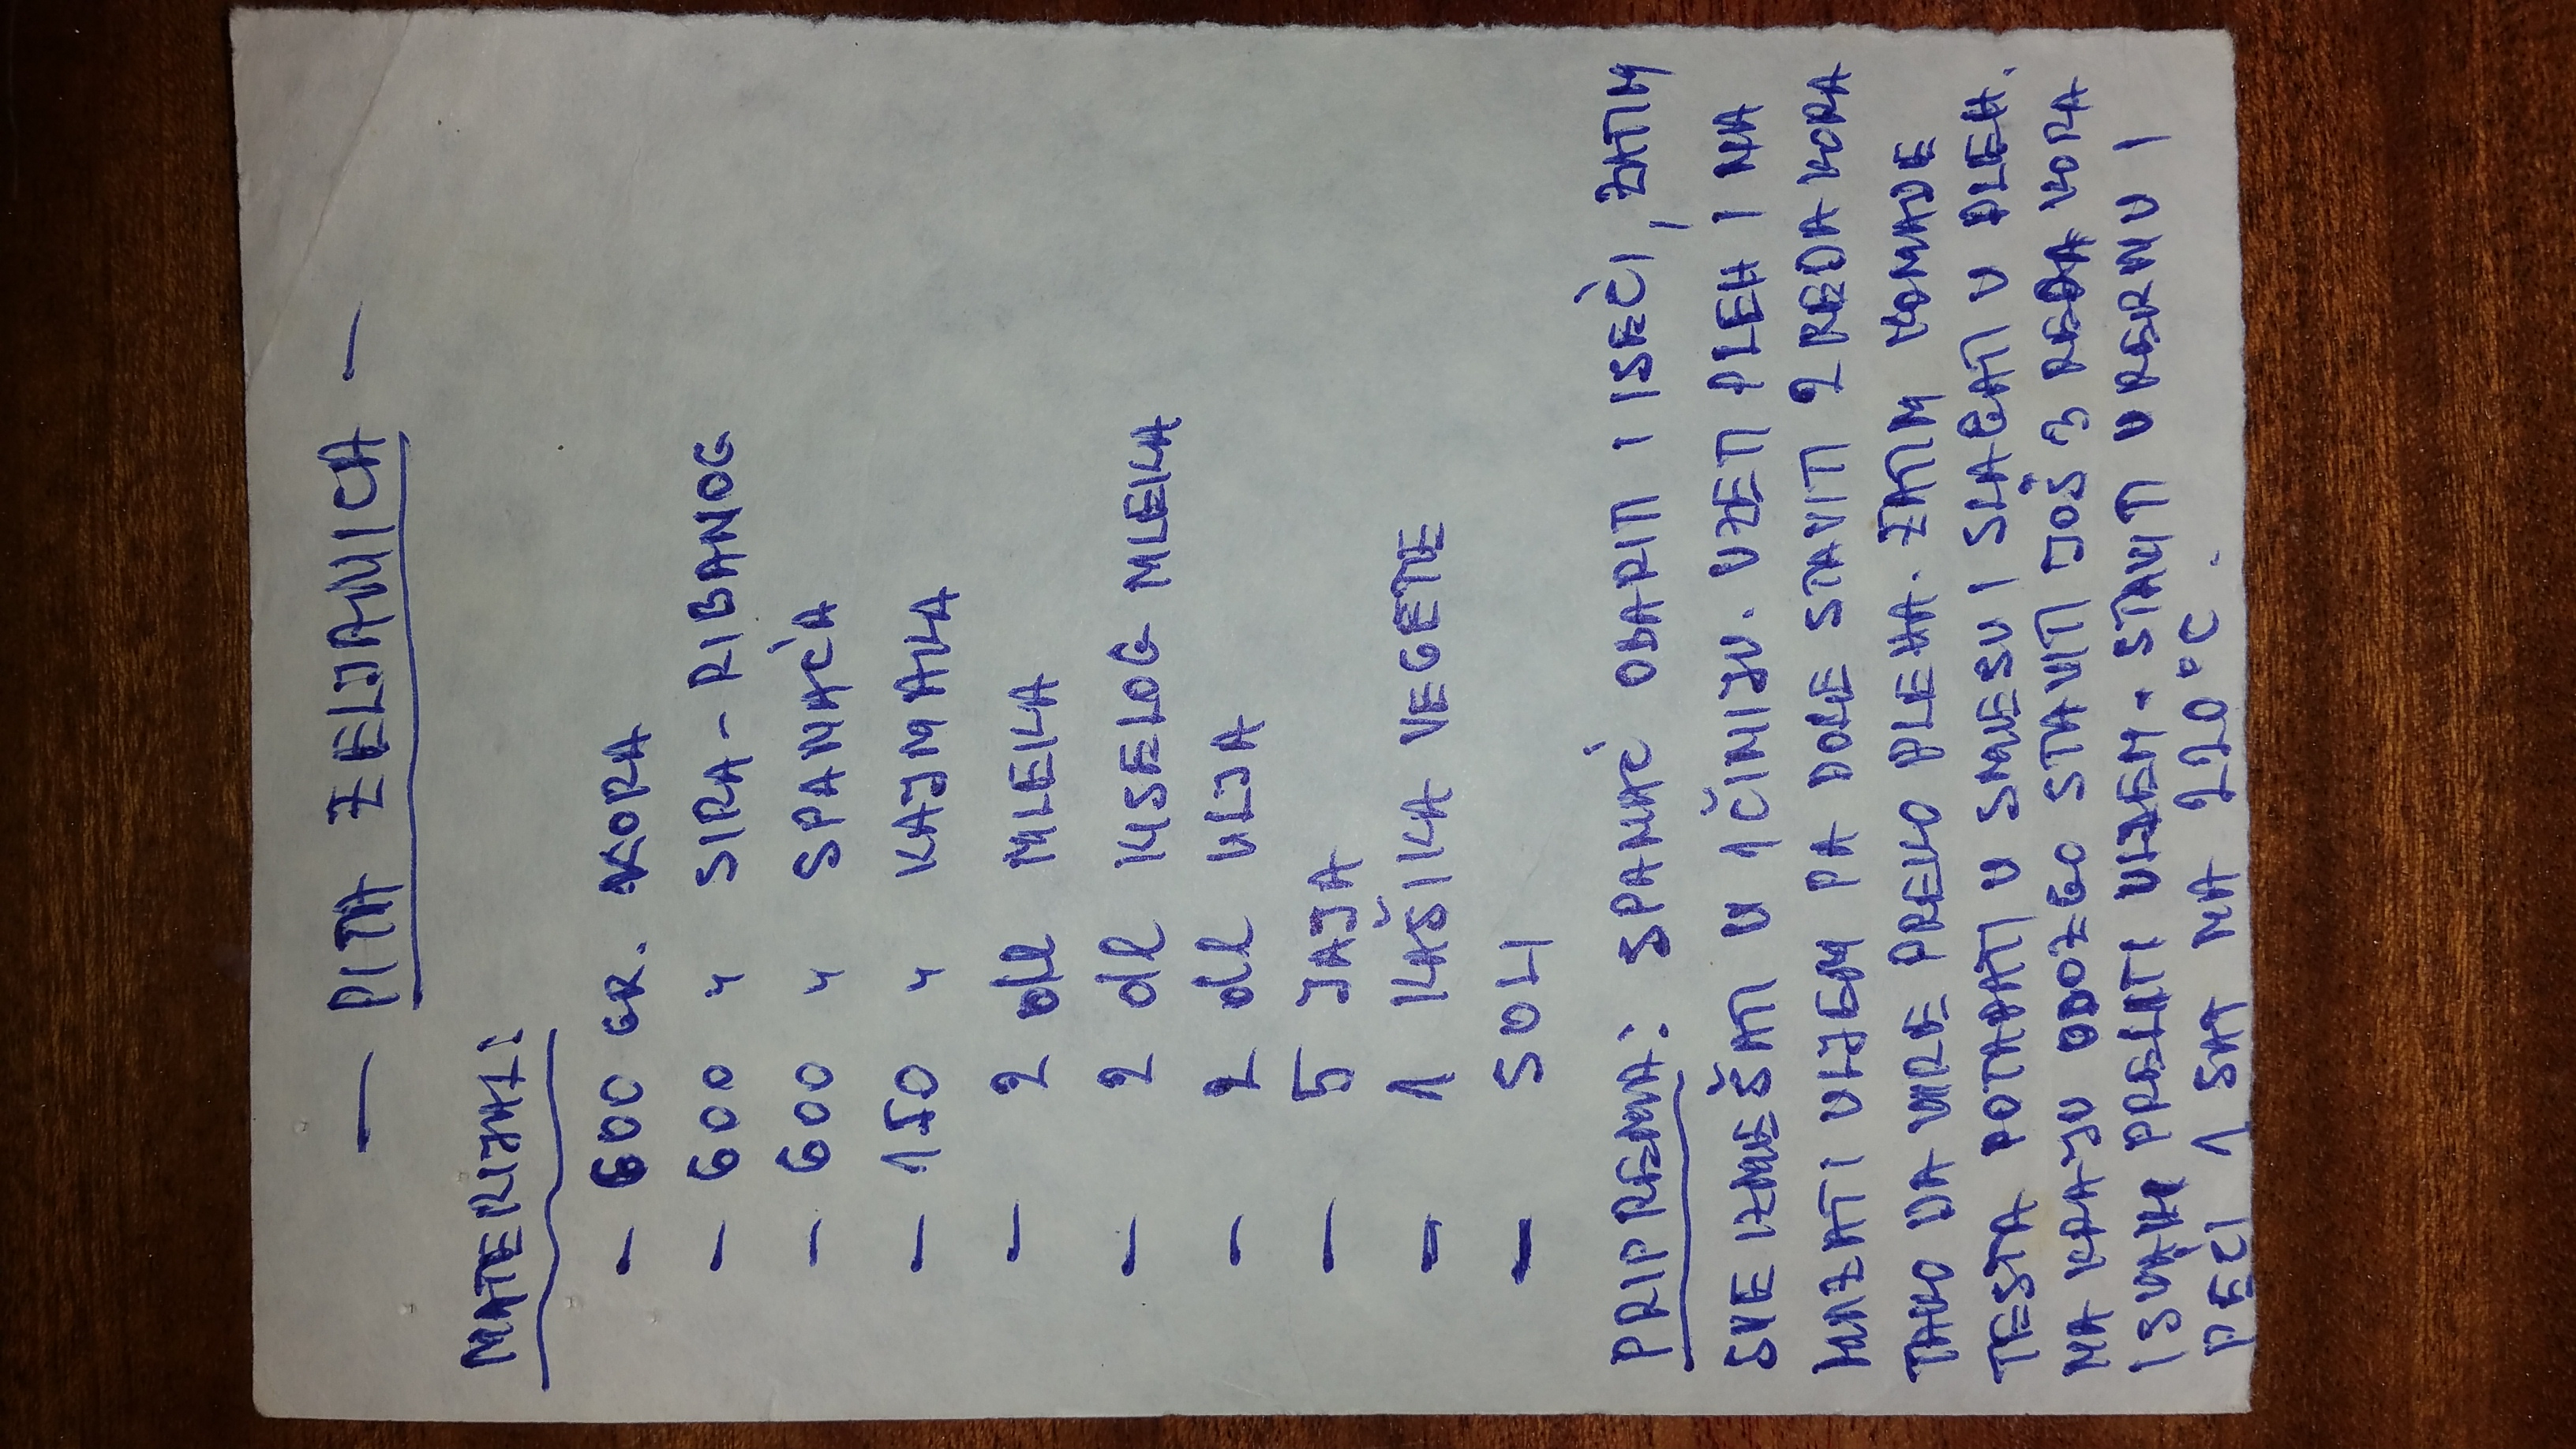 - PITA ZELJANICA -
MATERIJAL:
- 600 GR. KORA
- 600 " SIRA - RIBANOG
- 600 " SPANAĆA
- 150 " KAJMAKA
- 2 dl MLEKA
- 2 dl KISELOG MLEKA
- 2 dl ULJA
- 5 JAJA
- 1 KAŠIKA VEGETE
- SOLI
PRIPREMA: SPANAĆ OBARITI I ISEĆI, ZATIM
SVE IZMEŠATI U 1 ČINIJU. UZETI PLEH I NA
MAZATI ULJEM PA DOLE STAVITI 2 REDA KORA
TAKO DA VIRE PREKO PLEHA. ZATIM KOMADE
TESTA POTAPATI U SMESU I SLAGATI U PLEH.
NA KRAJU ODOZGO STAVITI JOŠ 3 REDA KORA
I SVAKI PRELITI ULJEM. STAVITI U RERNU I
PEĆI 1 SAT NA 220°C.